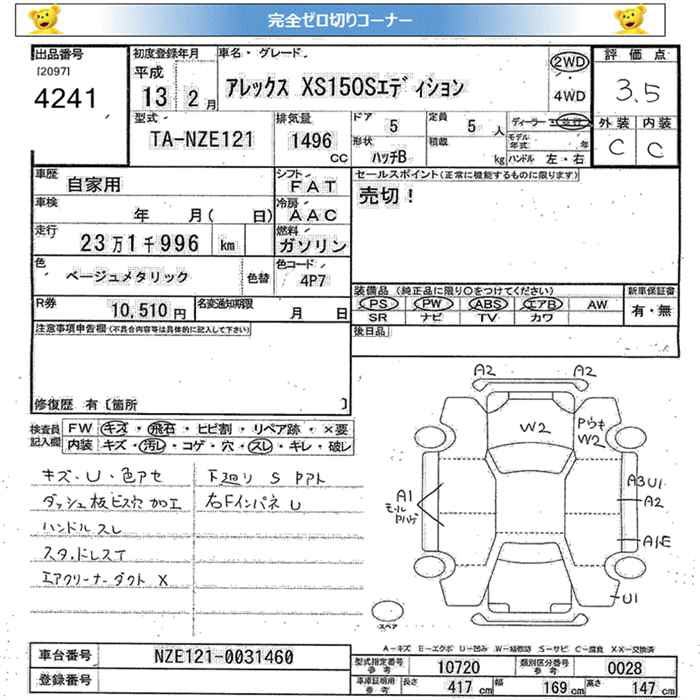 完全ゼロ切りコーナー
出品番号
[2097]
4241
初度登録年月
平成
13 2月
車名・グレード
アレックス XS150Sエディション
2WD
4WD
評価点
3.5
型式
TA-NZE121
排気量
1496
CC
ドア
5
定員
5 人
形状
ハッチB
積載
kg
ディーラー
モデル
年式
年
ハンドル 左・右
外装 内装
C C
車歴
自家用
シフト
FAT
セールスポイント(正常に機能するものに限ります)
売切!
車検
年 月( 日)
冷房
AAC
走行
23万1千996 km
燃料
ガソリン
色
ベージュメタリック
色替
色コード
4P7
装備品(純正品に限り○をつけてください)
新車保証書
PS PW ABS エアB AW
SR ナビ TV カワ
有・無
R券
10,510円
名変通知期限
月 日
後日品
注意事項申告欄(不具合内容等は具体的に記入して下さい)
修復歴 有〔箇所 〕
検査員
記入欄
FW キズ・飛石・ヒビ割・リペア跡・×要
内装 キズ・汚レ・コゲ・穴・スレ・キレ・破レ
キズ・U・色アセ
ダッシュ板ビス穴 加工
ハンドル スレ
スタッドレスT
エアクリーナーダクト X
下廻り S Pアト
右FインパネU
A2 A2
W2
Pウキ
W2
A1
モール
Pハゲ
A3 U1
A2
A1E
U1
スペア
A-キズ E-エクボ U-凹み W-補修跡 S-サビ C-腐食 XX-交換済
車台番号
NZE121-0031460
登録番号
型式指定番号
参考
10720
類別区分番号
参考
0028
車庫証明用
参考
長さ
417 cm
幅
169 cm
高さ
147 cm